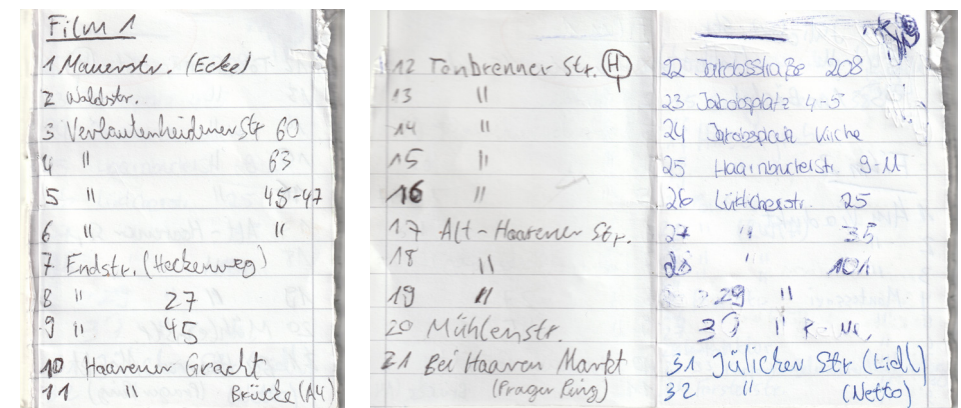 Film 1
1 Mauerstr. (Ecke)
2 Waldstr.
3 Verlautenheidener Str 60
4 " 63
5 " 45-47
6 " "
7 Endstr. (Heckenweg)
8 " 27
9 " 45
10 Haarener Gracht
11 " Brücke (A4)
12 Tonbrenner Str. (H)
13 "
14 "
15 "
16 "
17 Alt-Haarener Str.
18 "
19 "
20 Mühlenstr.
21 Bei Haaren Markt
(Prager Ring)
22 Jakobsstraße 208
23 Jakobsplatz 4-5
24 Jakobsplatz Kirche
25 9-11
26 Lütticherstr. 25
27 " 35
"
29 "
30 "
31 Jülicher Str (Lidl)
32 " (Netto)